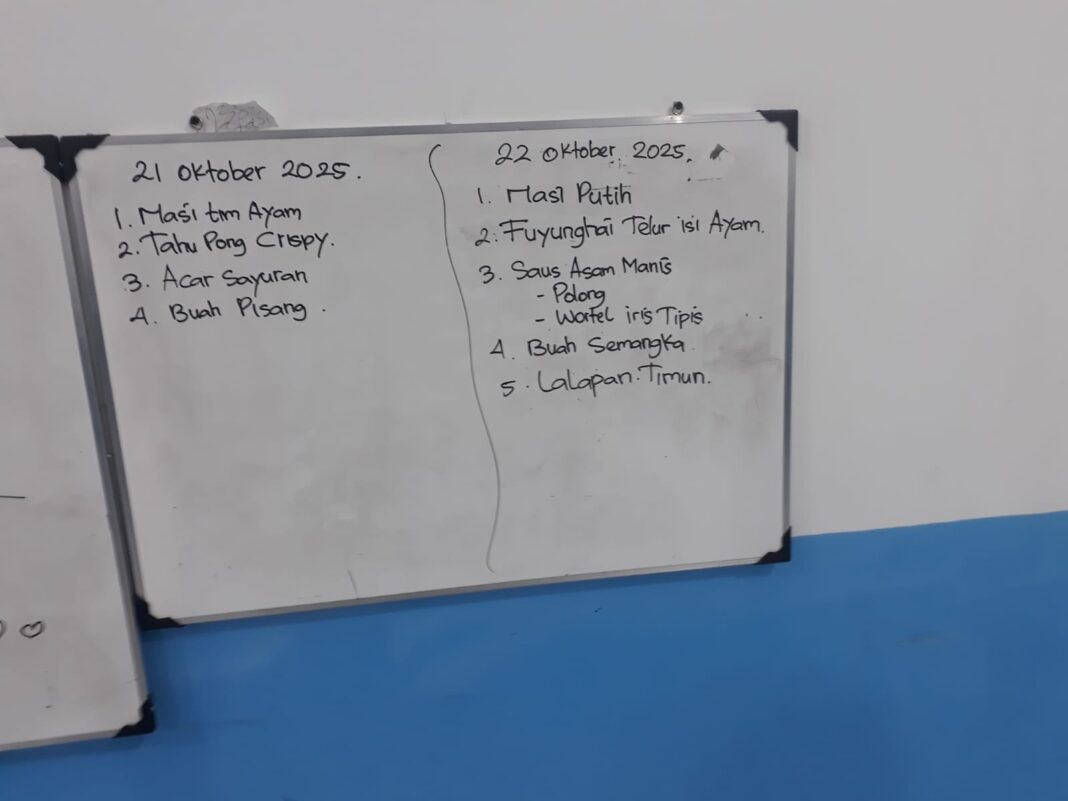 21 Oktober 2025.
1. Nasi tim Ayam
2. Tahu Pong Crispy.
3. Acar Sayuran
4. Buah Pisang.
22 Oktober 2025.
1. Nasi Putih
2. Fuyunghai Telur isi Ayam.
3. Saus Asam Manis
- Polong
- Wortel iris Tipis
4. Buah Semangka
5. Lalapan Timun.